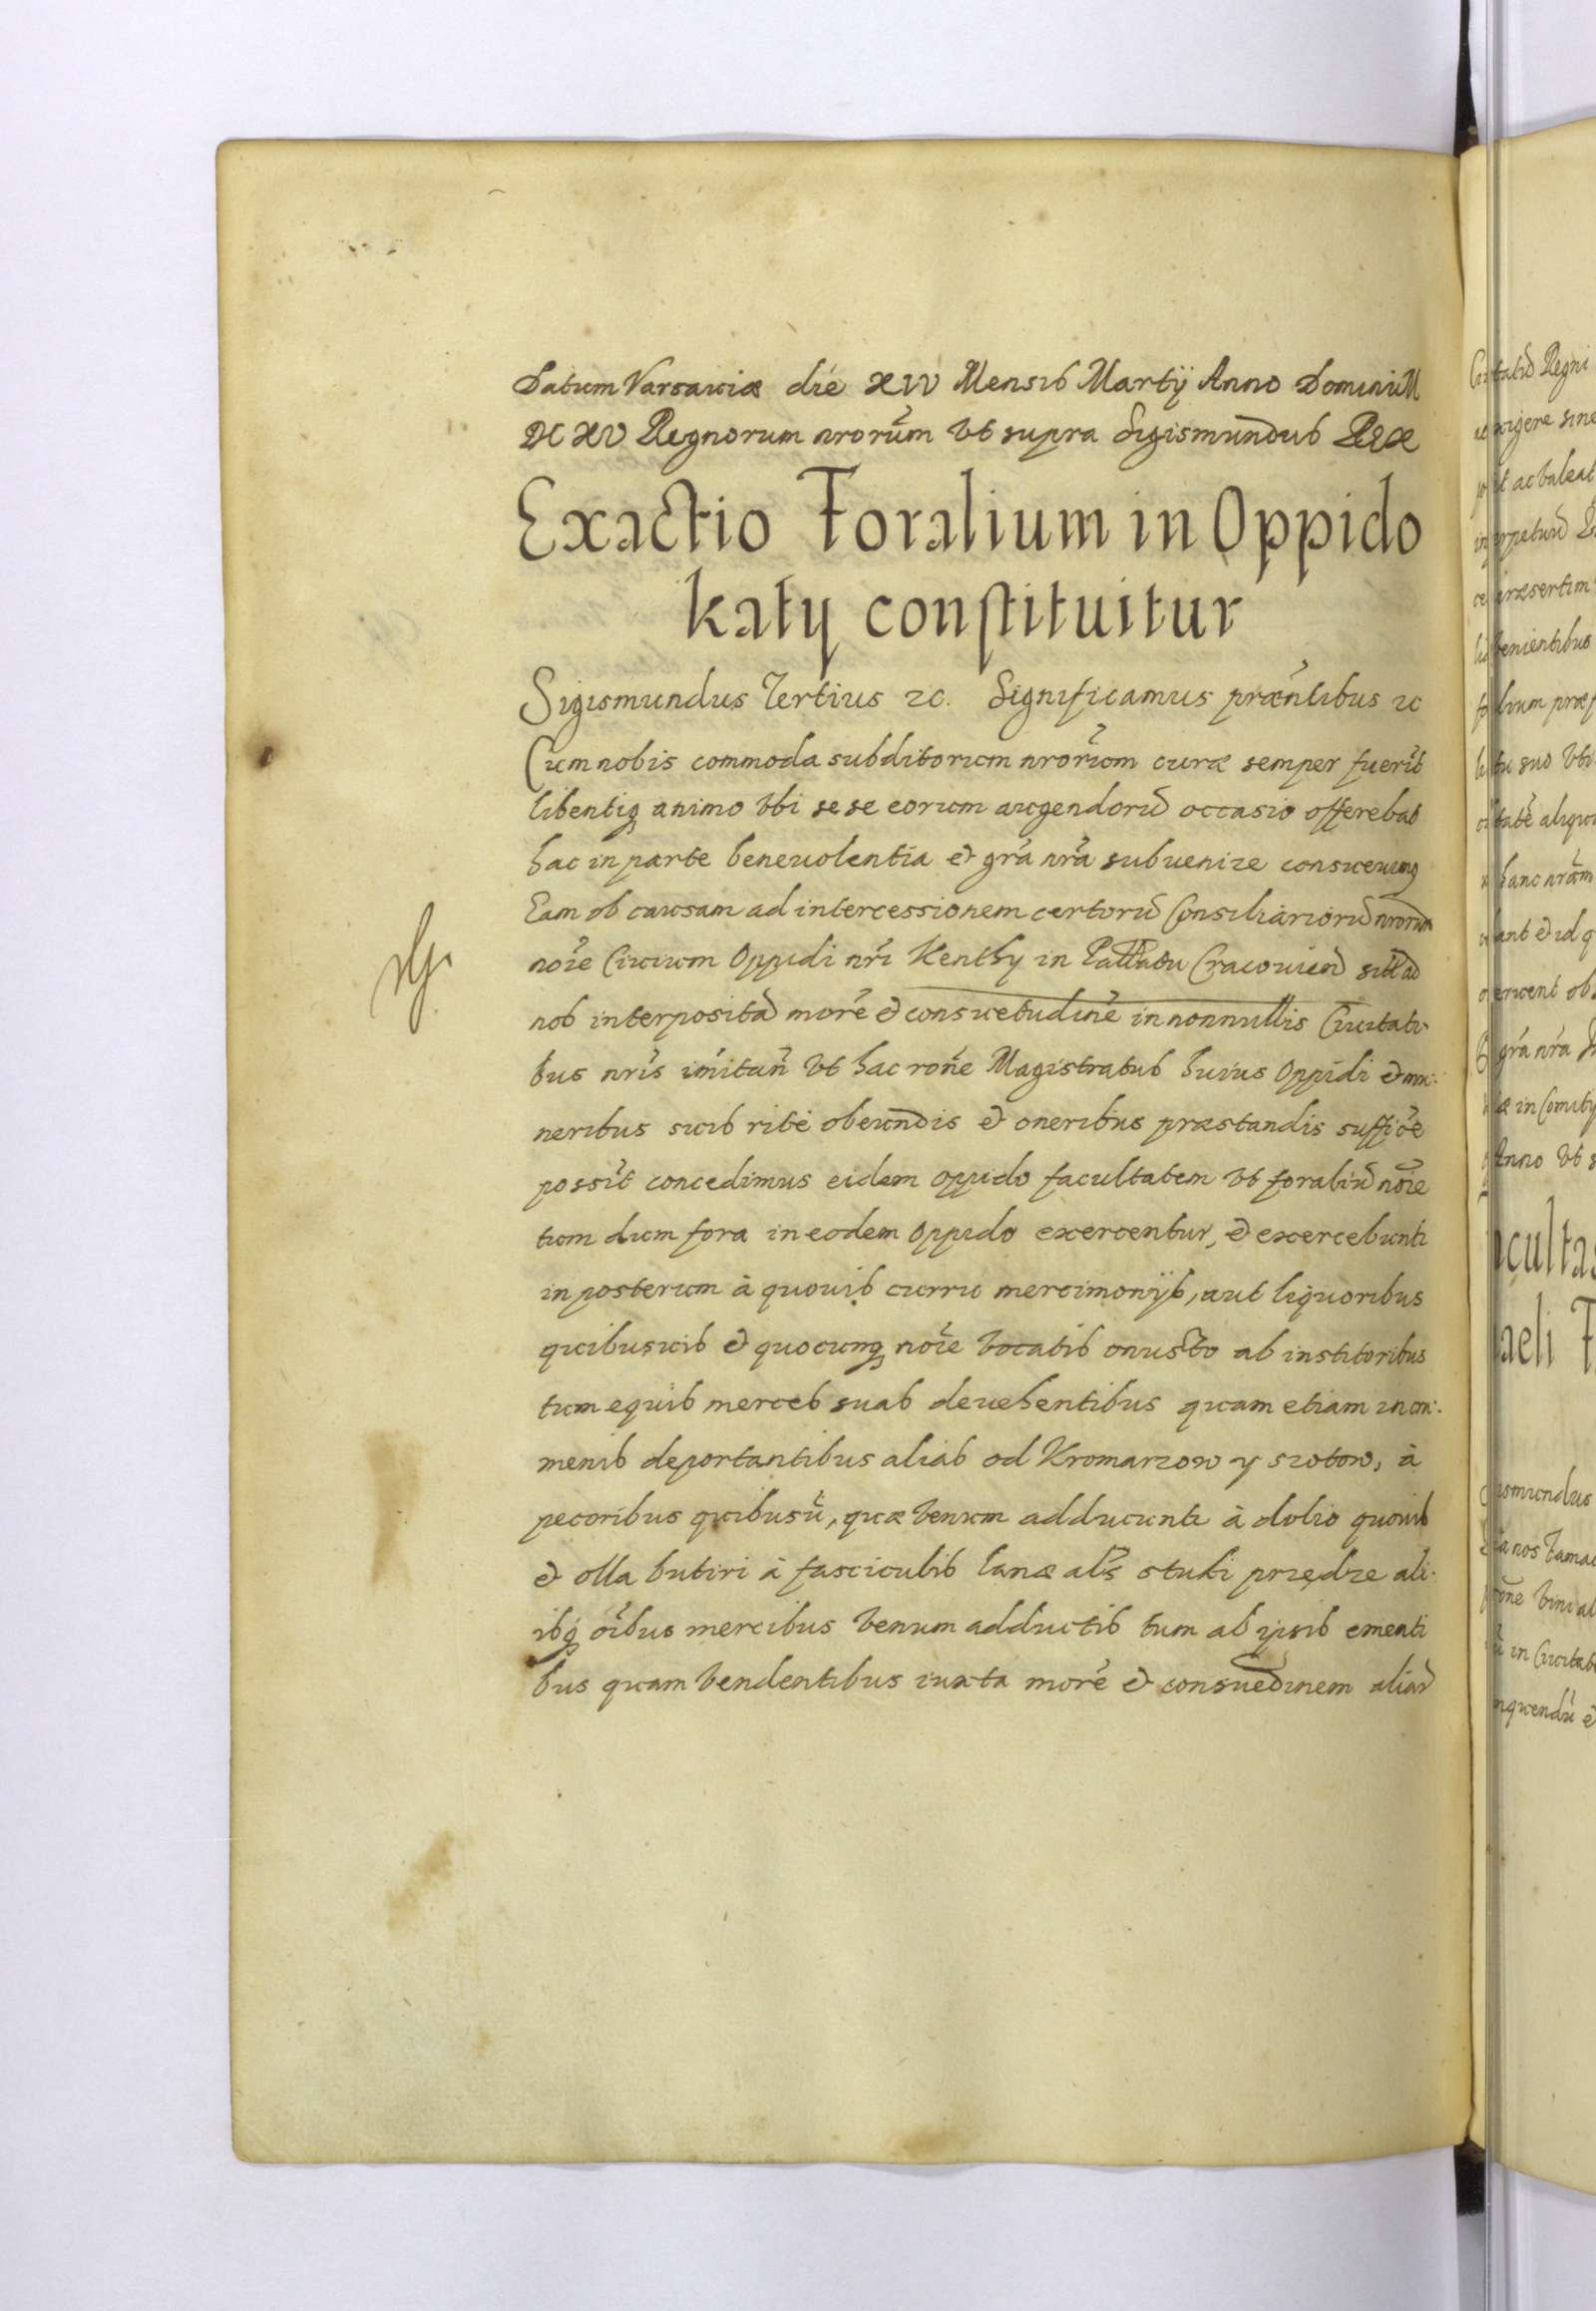 Datum Varsauiæ die XIV Mensis Martÿ Anno Domini M
DC XV Regnorum nrorum vt supra Sigismundus Rex
Exactio Foralium in Oppido
Katy constituitur
Sigismundus Tertius zc. Significamus præntibus zc
Cum nobis commoda subditorum nrorum curæ semper fuerit
libentiq animo vbi se se eorum augendorũ occasio offerebat
hac in parte beneuolentia et gra nra subuenire consueuimq
Eam ob causam ad intercessionem certorũ Consiliariorũ nrorum
noie Ciuium Oppidi nri Kenthy in Pallatu Cracouien sitt ad
nos interpositã morẽ et consuetudinẽ in nonnullis Ciuitati-
bus nris imitañ vt hac rone Magistratus huius Oppidi et mu-
neribus suis ritè obeundis et oneribus præstandis sufficẽ
possit concedimus eidem oppido facultatem vt foraliũ noie
tum dum fora in eodem Oppido exercentur, et exercebunti
in posterum à quouis curru mercimonÿs, aut liquoribus
quibusuis et quocunq noie vocatis onusto ab institoribus
tum equis merces suas deuehentibus quam etiam in cru-
menis deportantibus alias od Kromarzow y szotow, à
pecoribus quibusũ, quæ venum adducunti à dolio quouis
et olla butiri à fasciculis lanæ als studi przędze ali-
ibq oibus mercibus venum adductis tum ab ipsis ementi
bus quam vendentibus iuxta morẽ et consuedinem aliaĩ